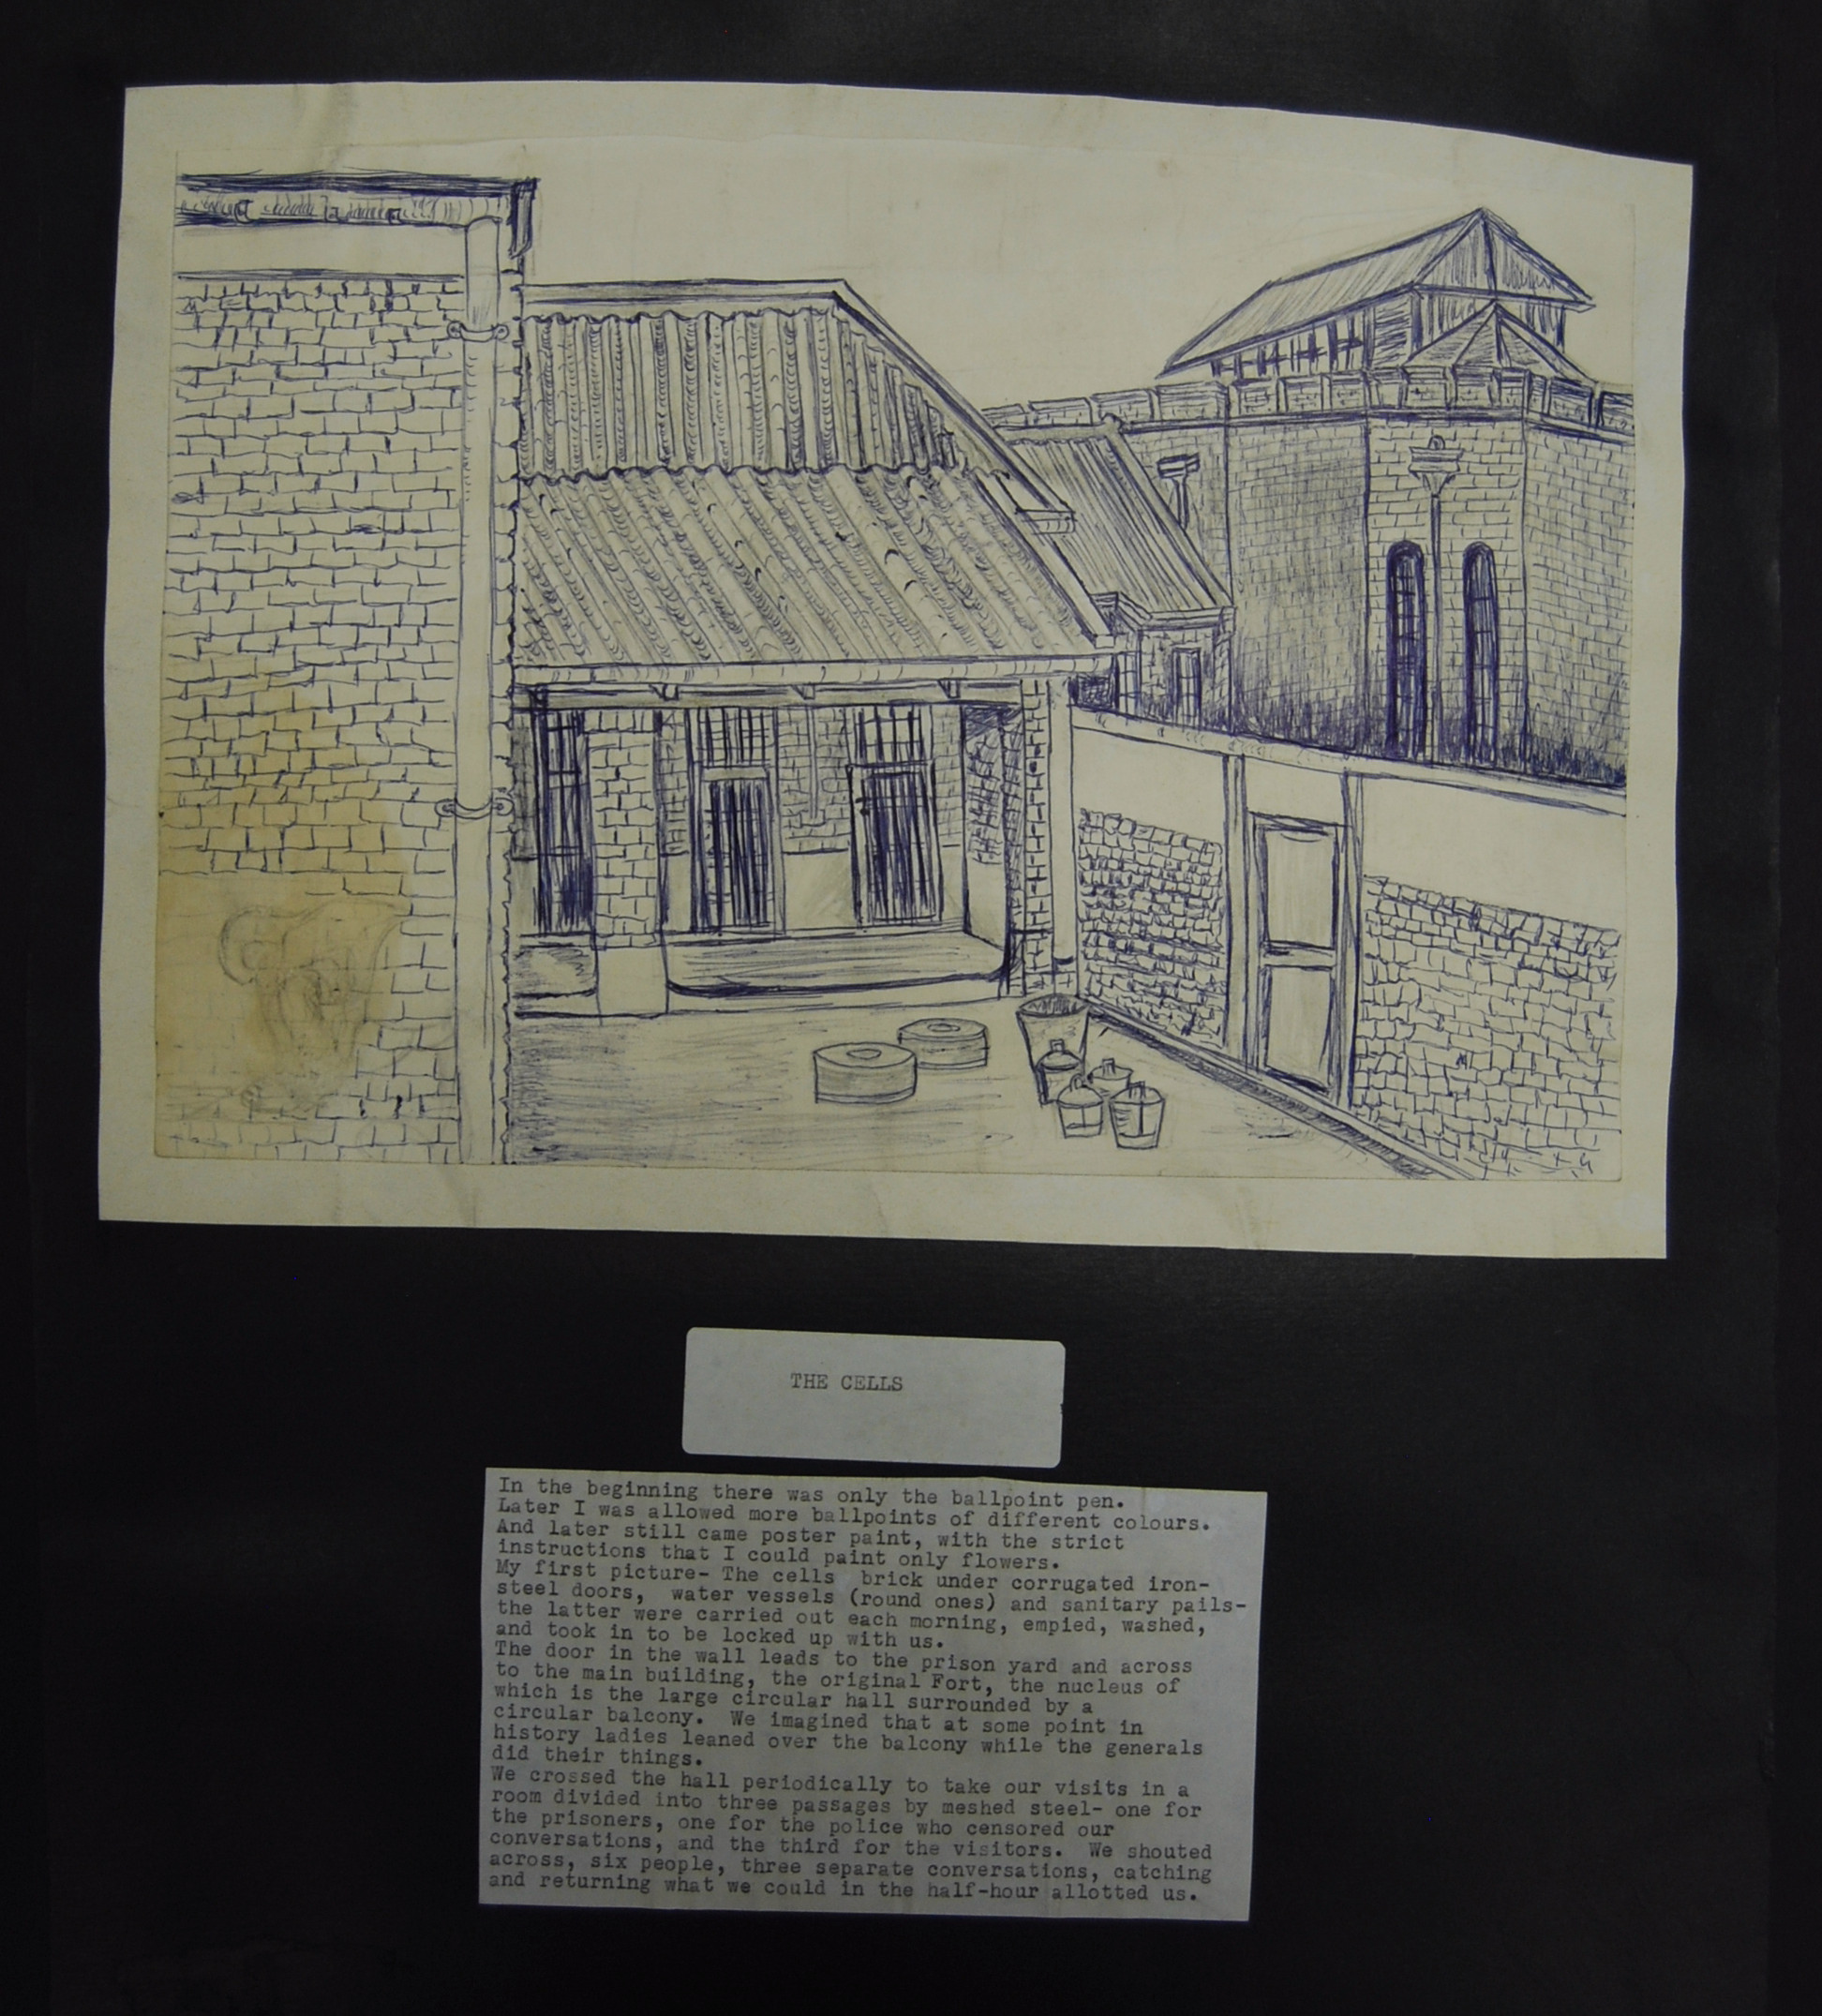 THE CELLS
In the beginning there was only the ballpoint pen.
Later I was allowed more ballpoints of different colours.
And later still came poster paint, with the strict
instructions that I could paint only flowers.
My first picture- The cells brick under corrugated iron-
steel doors, water vessels (round ones) and sanitary pails-
the latter were carried out each morning, empied, washed,
and took in to be locked up with us.
The door in the wall leads to the prison yard and across
to the main building, the original Fort, the nucleus of
which is the large circular hall surrounded by a
circular balcony. We imagined that at some point in
history ladies leaned over the balcony while the generals
did their things.
We crossed the hall periodically to take our visits in a
room divided into three passages by meshed steel- one for
the prisoners, one for the police who censored our
conversations, and the third for the visitors. We shouted
across, six people, three separate conversations, catching
and returning what we could in the half-hour allotted us.